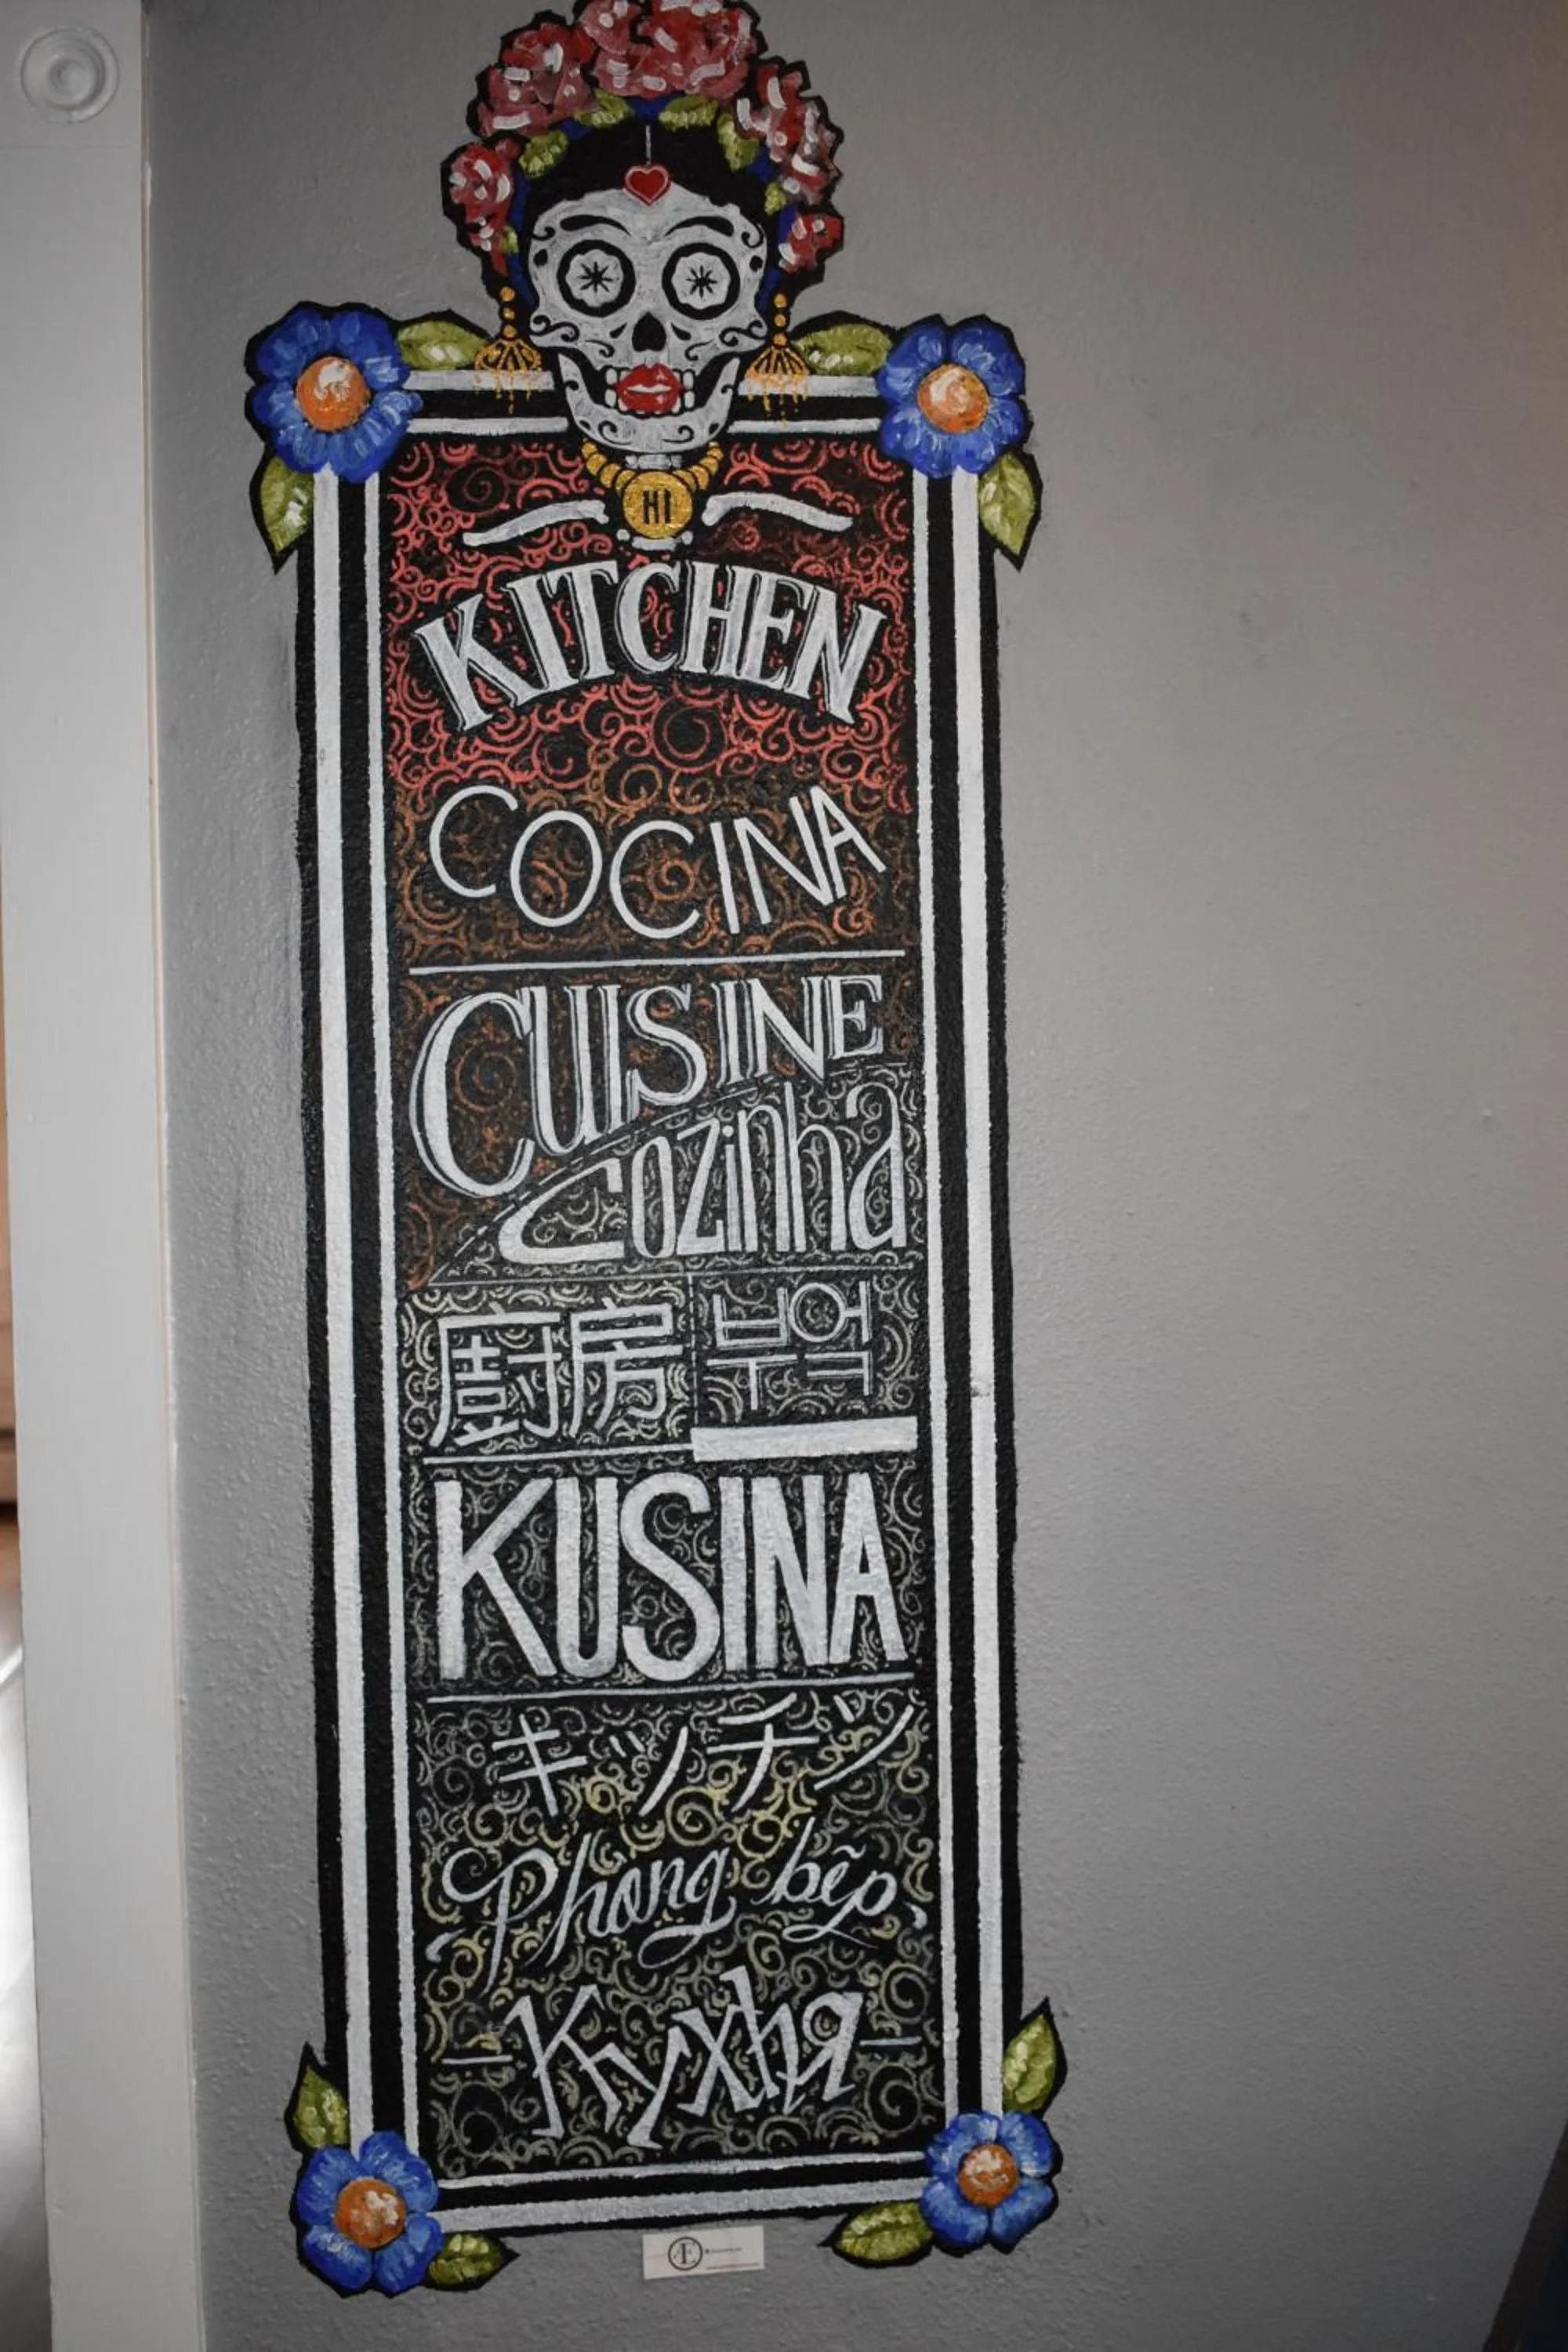 HI
KITCHEN
COCINA
CUISINE
Cozinha
廚房 부엌
KUSINA
キッチン
Phong bếp
Кухня